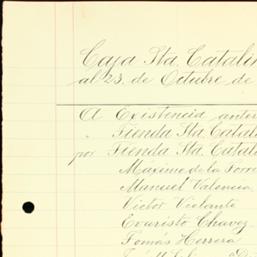 Caja Sta. Catalin
al 23 de Octubre de
A Existencia anter
" Tienda Sta. Catal
por Tienda Sta. Catal
Máximo de la Torre
Manuel Valencia
Victor Violante
Evaristo Chavez
Tomás Herrera